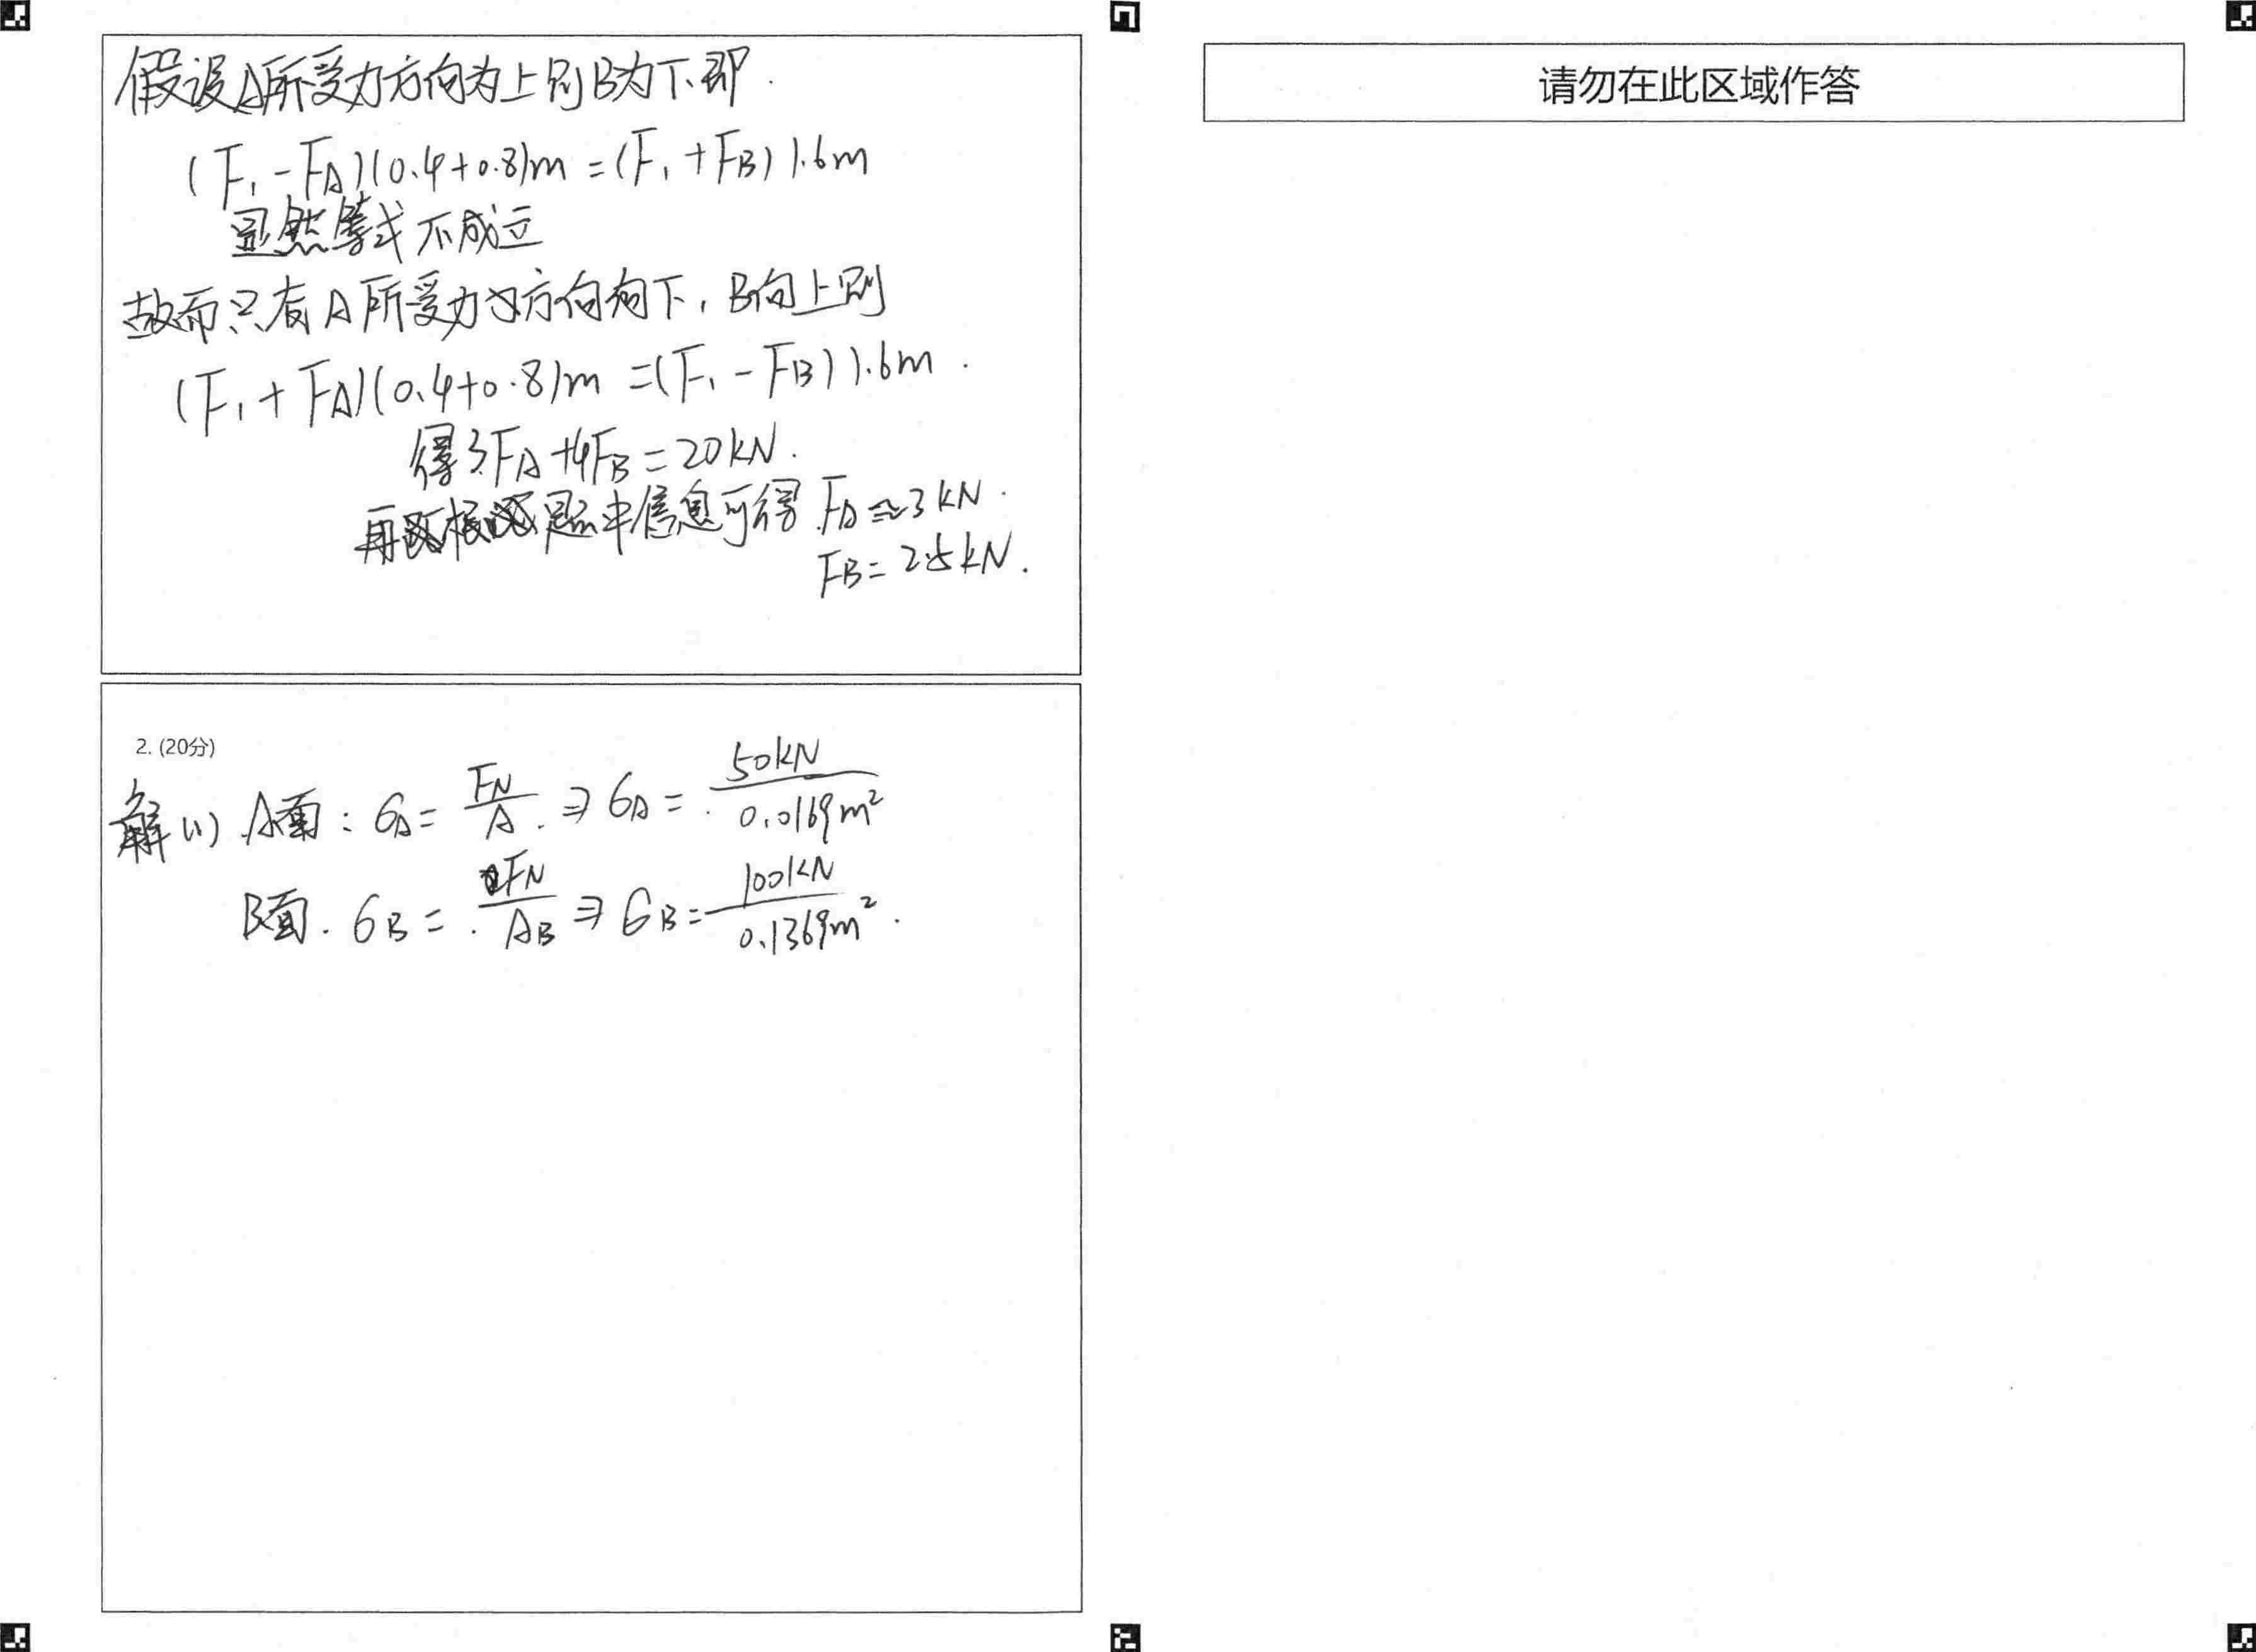 假设A所受力方向为上则B为下.即.
(F₁-FA)(0.4+0.8)m=(F₁+FB)1.6m
显然等式不成立
故而只有A所受力为方向向下,B向上则
(F₁+FA)(0.4+0.8)m=(F₁-FB)1.6m.
得3FA+4FB=20kN.
再根据题中信息可得FA≈3kN.
FB=2.5kN.
2. (20分)
解(1).A面:σA=FN/A.⇒σA=50kN/0.0169m²
B面.σB=FN/AB⇒σB=100kN/0.1369m².
请勿在此区域作答